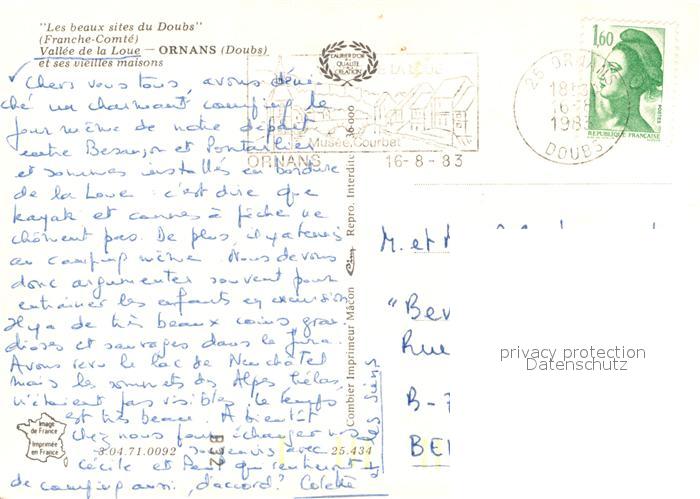 "Les beaux sites du Doubs"
(Franche-Comté)
Vallée de la Loue — ORNANS (Doubs)
et ses vieilles maisons
Chers vous tous, avons déni-
ché un charmant camping le
jour même de notre départ
entre Besançon et Pontarlier
et sommes installés en bordure
de la Loue : c'est dire que
kayak et cannes à pêche ne
chôment pas. De plus, il y a tennis
au camping même. Nous devons
donc argumenter souvent pour
entraîner les enfants en excursion
Il y a de très beaux coins gran-
dioses et sauvages dans le Jura.
Avons revu le lac de Neuchâtel
mais les sommets des Alpes hélas,
n'étaient pas visibles. Le temps
est très beau. A bientôt
chez nous pour échanger nos
souvenirs avec
Cécile et Paul qui rentreront
de camping aussi, d'accord? Colette
et les siens
Image
de France
Imprimée
en France
3.04.71.0092
B32
25.434
Combier Imprimeur Mâcon Cim Repro. Interdite 36.000
L'AURIER D'OR
DE LA
QUALITÉ
DE LA
CRÉATION
DE LA
Musée Courbet
ORNANS 16-8-83
25 ORNANS
18H
16-8
1983
DOUBS
1,60
POSTES
REPUBLIQUE FRANÇAISE
M. et
"Bev
Rue
B-7
BE
privacy protection
Datenschutz